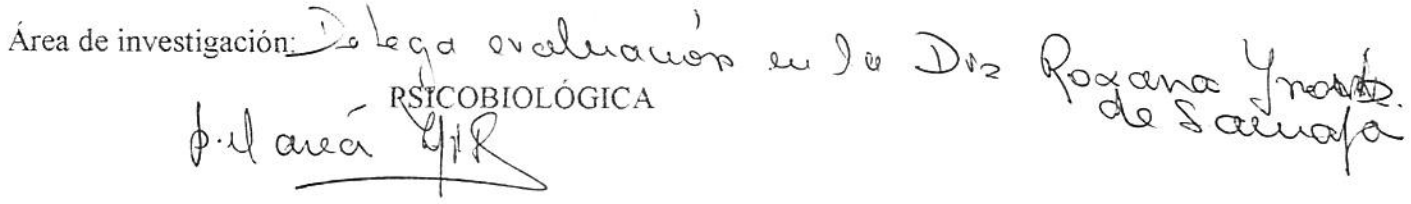 Área de investigación: Delega evaluación en la Dra Roxana Ynoub
de Samaja
PSICOBIOLÓGICA
p. el area